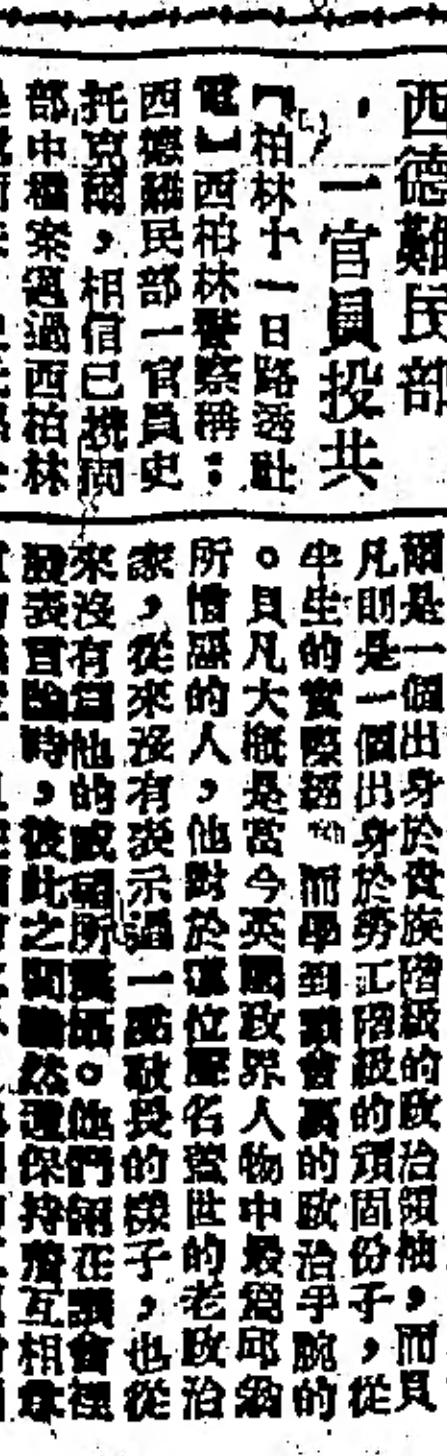 西德難民部
，一官員投共
【柏林十一日路透社
電】西柏林警察稱：
西德難民部一官員史
托克爾，相信已携同
部中檔案逃過西柏林
爾是一個出身於貴族階級的政治領袖，而貝
凡則是一個出身於勞工階級的頑固份子，從
半生的實際經 而學到 會 的政治手腕的
。貝凡大概是當今英國政界人物中最為邱翁
所憎惡的人，他對於這位 名 世的老政治
家，從來沒有表示過一點敬畏的樣子，也從
來沒有為他的威 所 。他們 在議會裡
發表言論時，彼此之間雖然還保持着互相